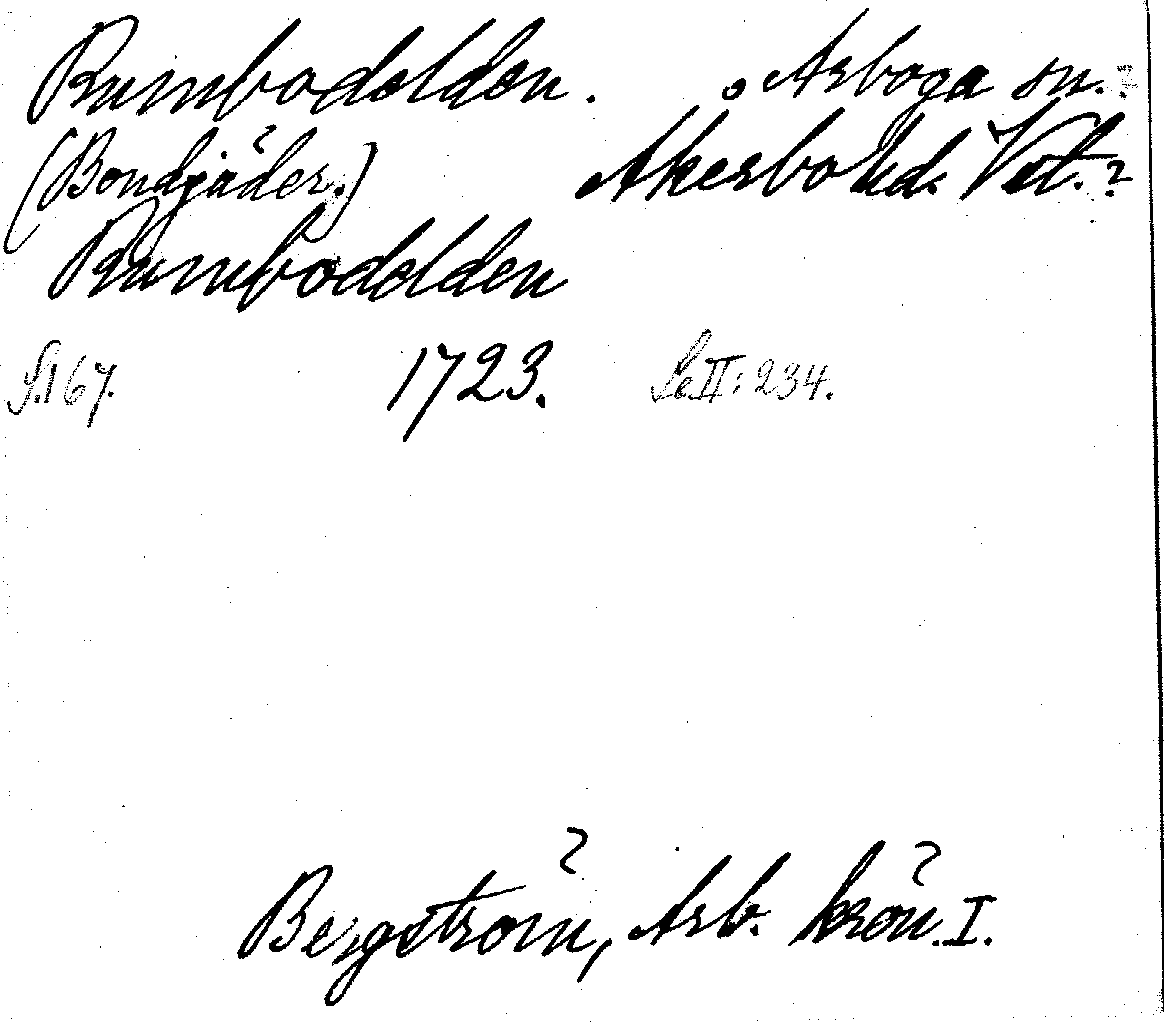 Rumbodelden. Arboga sn.?
(Bondgäder.) Åkerbo hd. Vstl.?
Rumbodelden
S. 167. 1723. Se II: 234.
Bergström, Arb. krön. I.